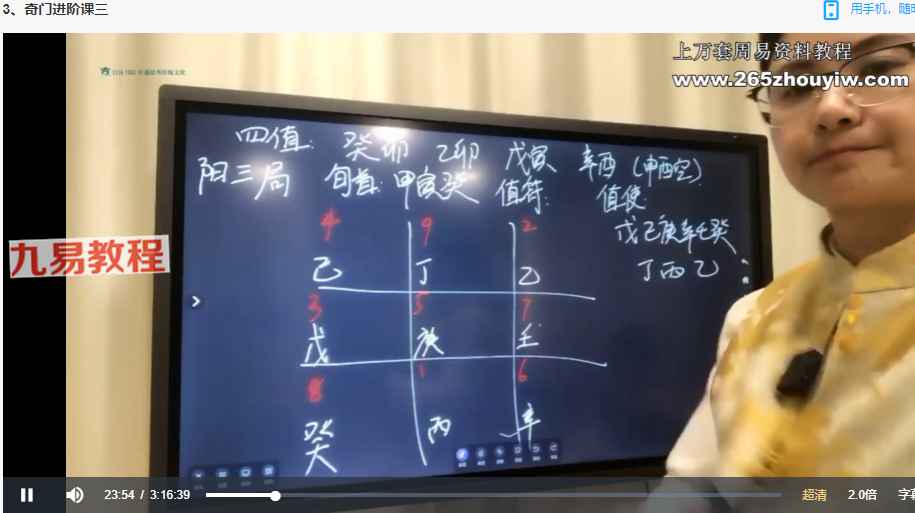 3、奇门进阶课三
用手机，随
上万套周易资料教程
www.265zhouyiw.com
四值: 癸卯 乙卯 戊寅 辛酉 (申酉空)
阳三局 旬首: 甲寅癸 值符: 值使:
戊己庚辛壬癸
丁丙乙
九易教程
4 9 2
己 丁 乙
3 5 7
戊 庚 壬
8 1 6
癸 丙 辛
23:54 / 3:16:39
超清 2.0倍 字